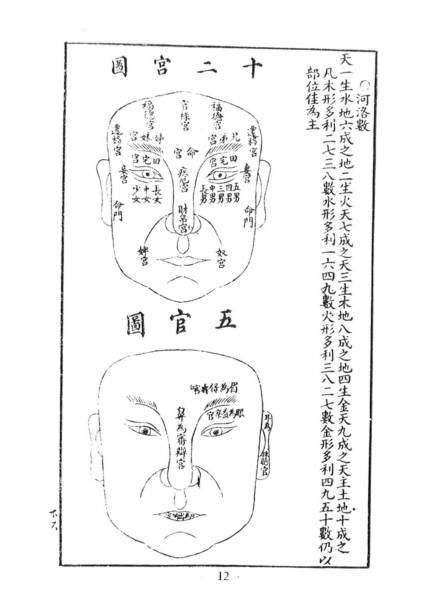 〇河洛數
天一生水地六成之地二生火天七成之天三生木地八成之地四生金天九成之天主土地十成之
凡木形多利二七三八數水形多利一六四九數火形多利三八二七數金形多利四九五十數仍以
部位佳為主
十二宮圖
官祿宮
福德宮
遷移宮
兄弟宮
命宮
田宅宮
妻宮
疾厄宮
五男
四男
三男
中男
長男
長女
中女
少女
財帛宮
命門
命門
奴宮
五官圖
鼻為審辯官
12